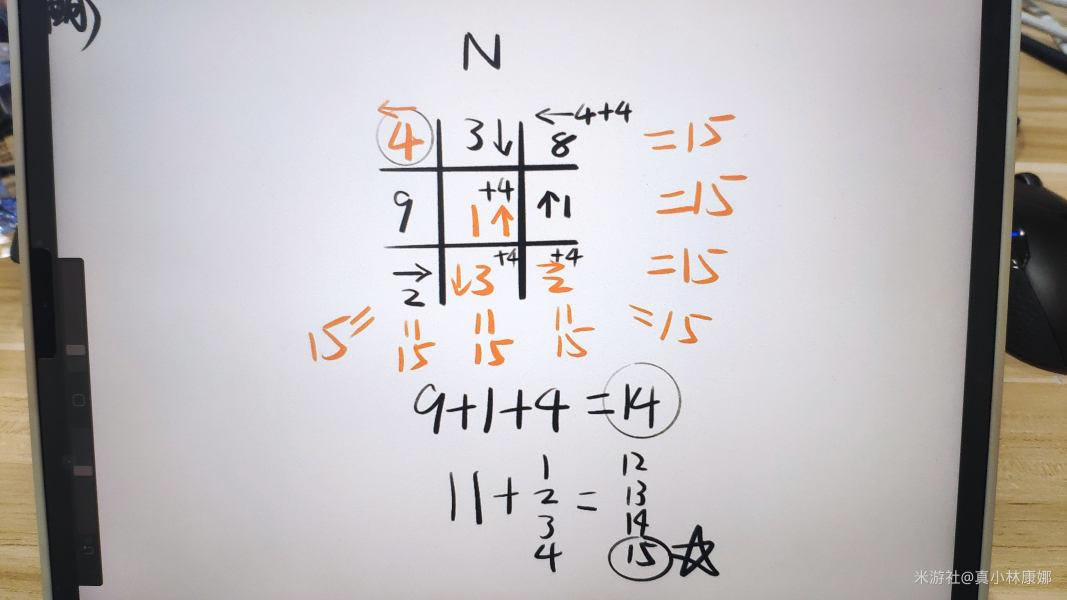 N
←
4 3↓ ←4+4 8 =15
9 +4 1↑ ↑1 =15
→ 2 ↓3 +4 → +4 2 =15
15= =15 =15 =15 =15
9+1+4=14
11+ 1 2 3 4 = 12 13 14 15 ☆
米游社@真小林康娜